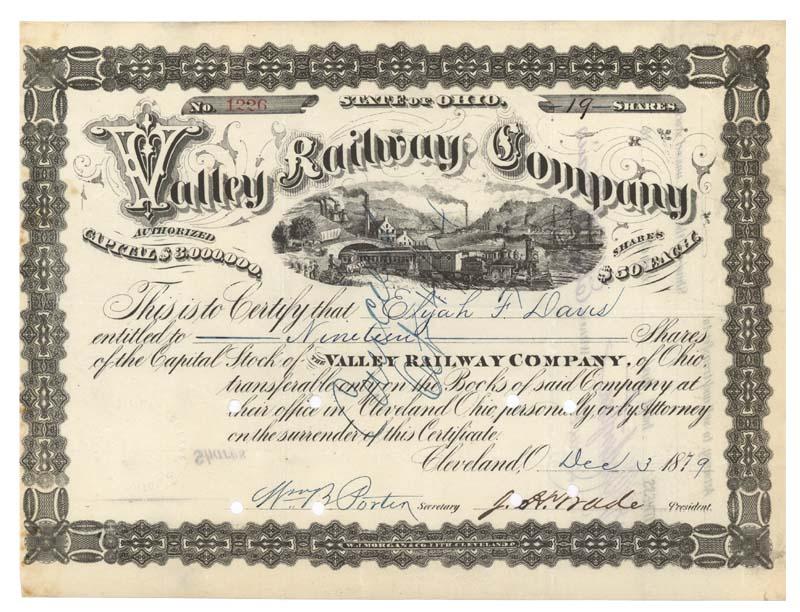 No. 1226 STATE OF OHIO. 19 SHARES
Valley Railway Company
AUTHORIZED CAPITAL $3,000,000.
SHARES $50 EACH.
This is to Certify that Elijah F Davis
entitled to Nineteen Shares
of the Capital Stock of THE VALLEY RAILWAY COMPANY, of Ohio,
transferable only on the Books of said Company at
their office in Cleveland Ohio, personally or by Attorney
on the surrender of this Certificate.
Cleveland, O. Dec 3 1879
Wm B Porter Secretary J. H. Wade President.
W.J. MORGAN & CO. LITH. CLEVELAND, O.
Shares